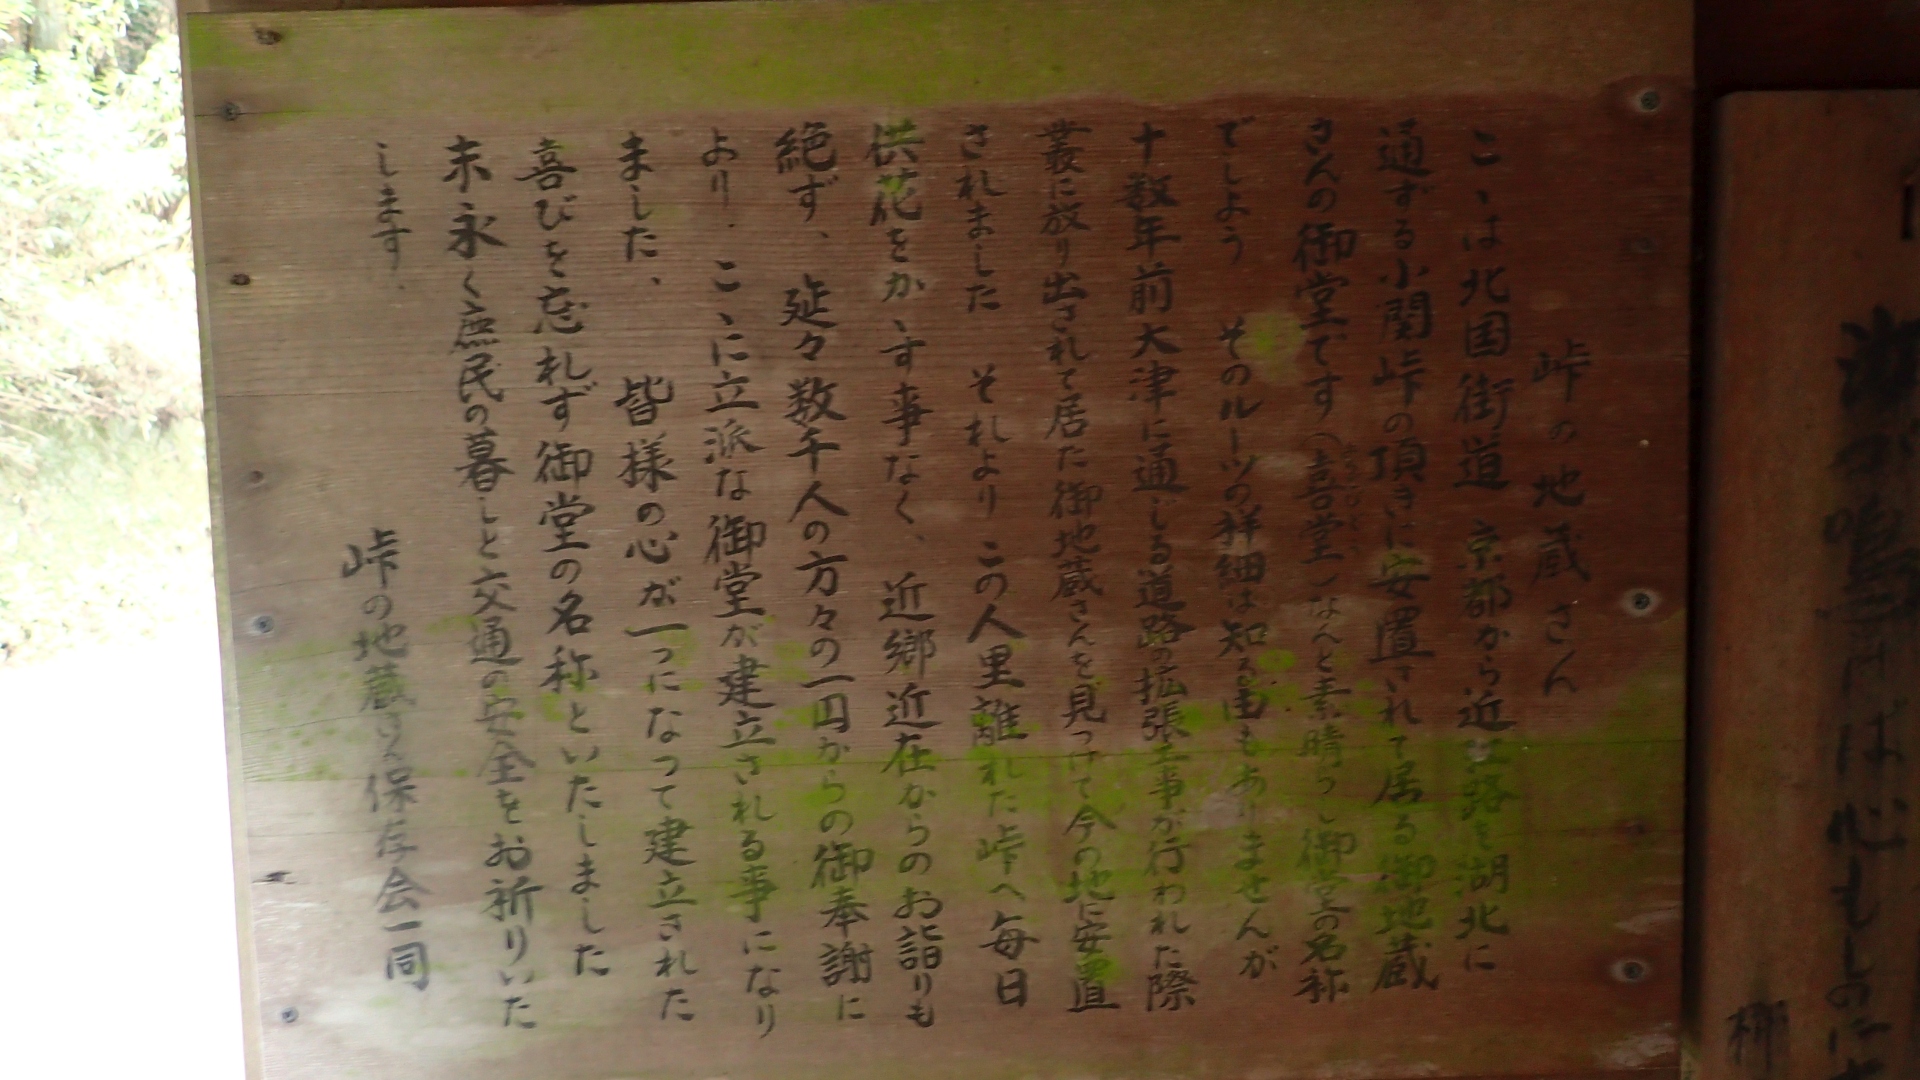 峠の地蔵さん
こゝは北国街道 京都から近江路を湖北に
通ずる小関峠の頂きに安置されて居る御地蔵
さんの御堂です(喜堂)なんと素晴らしい御堂の名称
でしよう そのルーツの詳細は知る由もありませんが
十数年前大津に通じる道路の拡張工事が行われた際
叢に放り出されて居た御地蔵さんを見つけて今の地に安置
されました それより この人里離れた峠へ毎日
供花をかゝす事なく、近郷近在からのお詣りも
絶ず、延々数千人の方々の一円からの御奉謝に
より、こゝに立派な御堂が建立される事になり
ました、皆様の心が一つになって建立された
喜びを忘れず御堂の名称といたしました
末永く庶民の暮しと交通の安全をお祈りいた
します.
峠の地蔵さん保存会一同